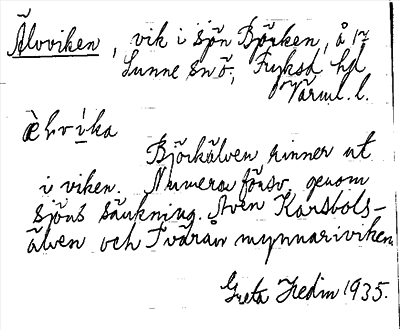 Älvviken, vik i sjön Björken, å
Sunne snö; Fryksd. hd
Värml. l.
Björkälven rinner ut
i viken. Numera försv. genom
sjöns sänkning. Även Karsbols-
älven och Tvärån mynnar i viken.
Greta Hedin 1935.